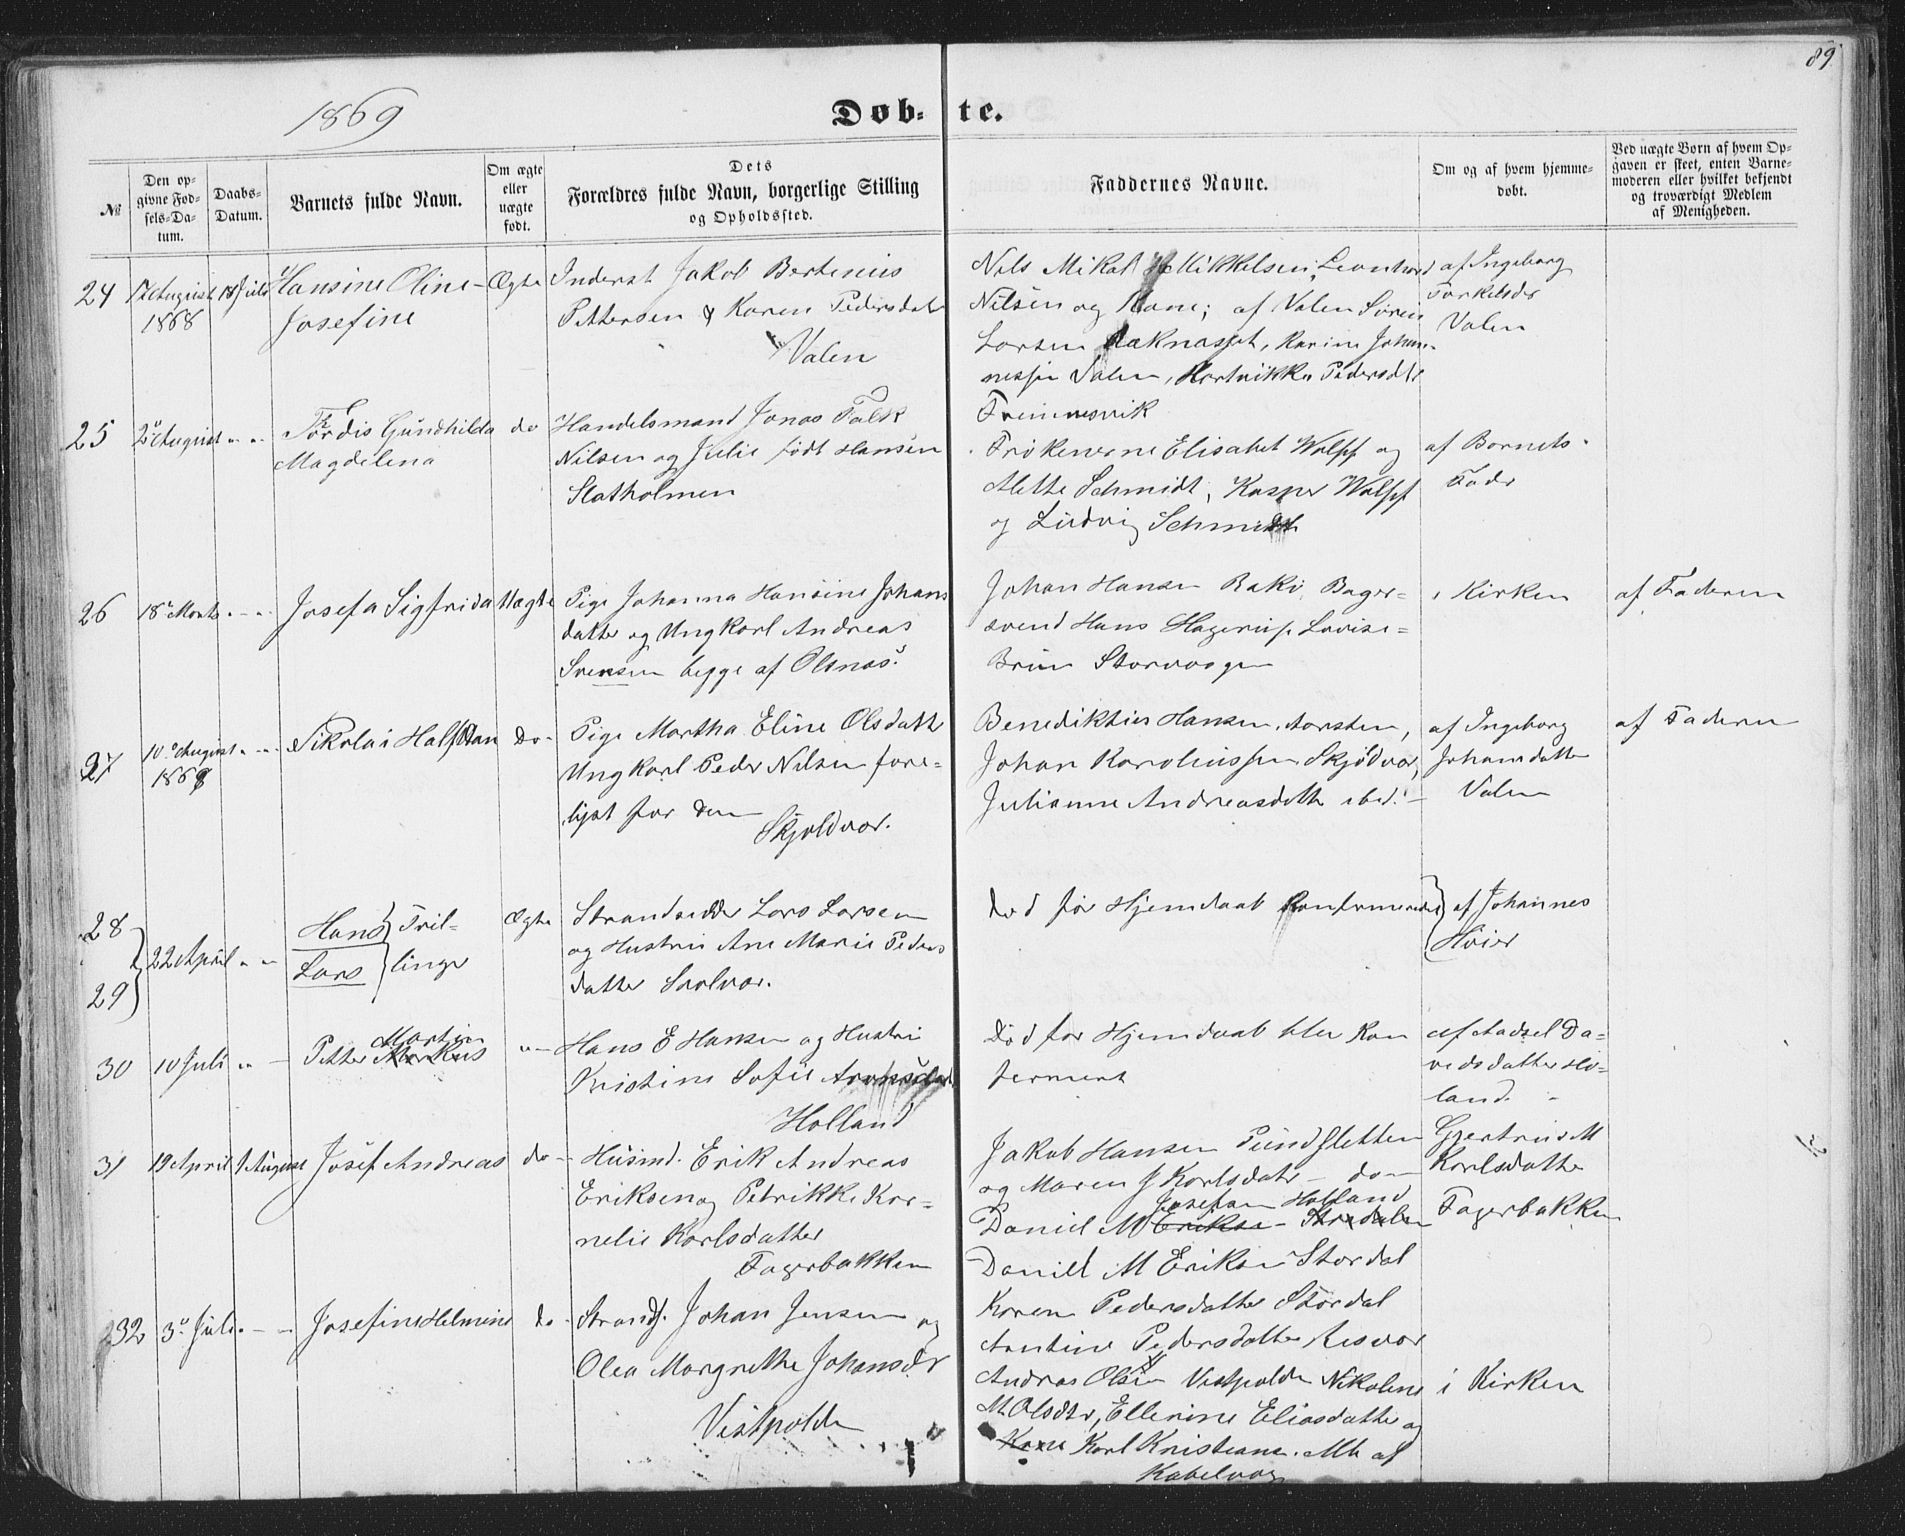 89
1869
Døb-te.
№
Den opgivne Fødsels-Datum.
Daabs-Datum.
Barnets fulde Navn.
Om ægte eller uægte født.
Dets Forældres fulde Navn, borgerlige Stilling og Opholdssted.
Faddernes Navne.
Om og af hvem hjemmedøbt.
Ved uægte Børn af hvem Opgaven er skeet, enten Barnemoderen eller hvilket bekjendt og troværdigt Medlem af Menigheden.
24
August
1868
18 Juli
Hansine Oline
Josefine
Ægte
Inderst Jakob Bertenius
Pettersen & Karen Pedersdat
Valen
Nils Mikal Mikkelsen, Leonhard
Nilsen og Kone; af Valen Søren
Larsen Raknasset, Karine Johan-
nessen Valen, Hartvikke Pedersdtr
Fremnesvik
af Ingeborg
Torkelsdr
Valen
25
August
Tordis Gundhilda
Magdelena
do
Handelsmand Jonas Falk
Nilsen og Julie født Hansen
Slotholmen
Frøkenerne Elisabet Wolff og
Alette Schmidt, Kasper Wolff
og Ludvig Schmidt
af Barnets
Fader
26
18de Marts
Josefa Sigfrida
Uægte
Pige Johanna Hansine Johans
datter og Ungkarl Andreas
Svensen begge af Olsnas.
Johan Hansen Rakø, Bager-
svend Hans Hagerup, Lovise
Brun Storvaagen
i Kirken
af Faderen
27
10de August
1868
Nikolai Halfdan
Do
Pige Martha Eline Olsdatt
Ungkarl Peder Nilsen fore-
lyst for dem
Skjoldvær.
Benediktus Hansen, Aarsten,
Johan Karoliussen Skjoldvær,
Julianne Andreasdatte ibid.
af Ingeborg
Johansdatte
Valen
af Faderen
28
29
22 April
Hans
Lars
Tvil-
linge
Ægte
Strandsidder Lars Larsen
og Hustru Ane Marie Peders
datter Svolvær.
død før Hjemdaab Konfirmeredes
af Johannes
Høier
30
10 Juli
Petter Markus
Martin
Hans E Hansen og Hustru
Kristine Sofie
Holland
Død før Hjemdaab blev Kon
fermert
af Aadsel Da-
vidsdatter Ho-
land.
31
19 April
1 August
Josef Andreas
do
Husmd. Erik Andreas
Eriksen og Petrikke Kor-
nelie Karlsdatter
Fagerbakken
Jakob Hansen Sundsletten
og Maren J Karlsdatr - do
Josefsen Holland
Daniel M Erikse Stordalen
Daniel M Eriksn Stordal
Karen Pedersdatter Stordal
Antine Pedersdatter Risvær
Gjertrud M
Karlsdatte
Fagerbakken
32
3de Juli
Josefine Helmine
do
Strands. Johan Jensen og
Olea Margrethe Johansdr
Vestpolden
Andras Olsen Vestpolden Nikoline
M. Olsdtr, Ellerine Eliasdatter og
Kone Karl Kristians. Alle af
Kabelvaag
i Kirken